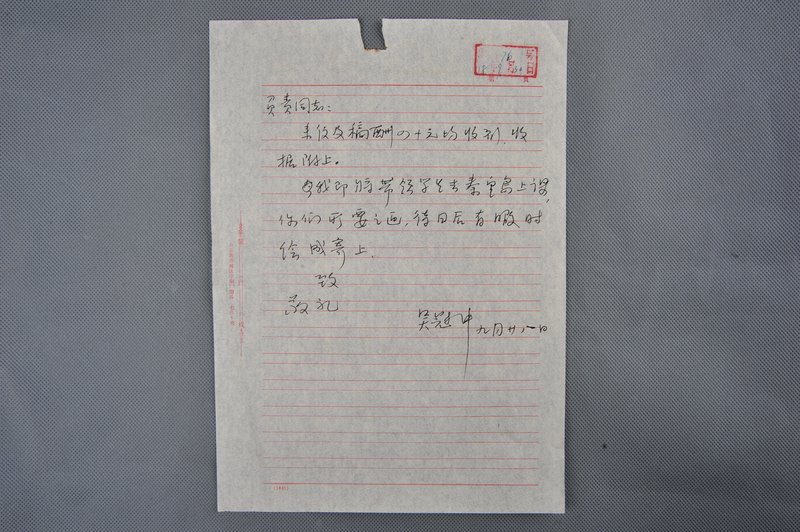 负责同志：
来信及稿酬四十元均收到，收
据附上。
因我即将带领学生去秦皇岛上课，
你们所要之画，待日后有暇时
绘成寄上。
致
敬礼
吴冠中 九月廿八日